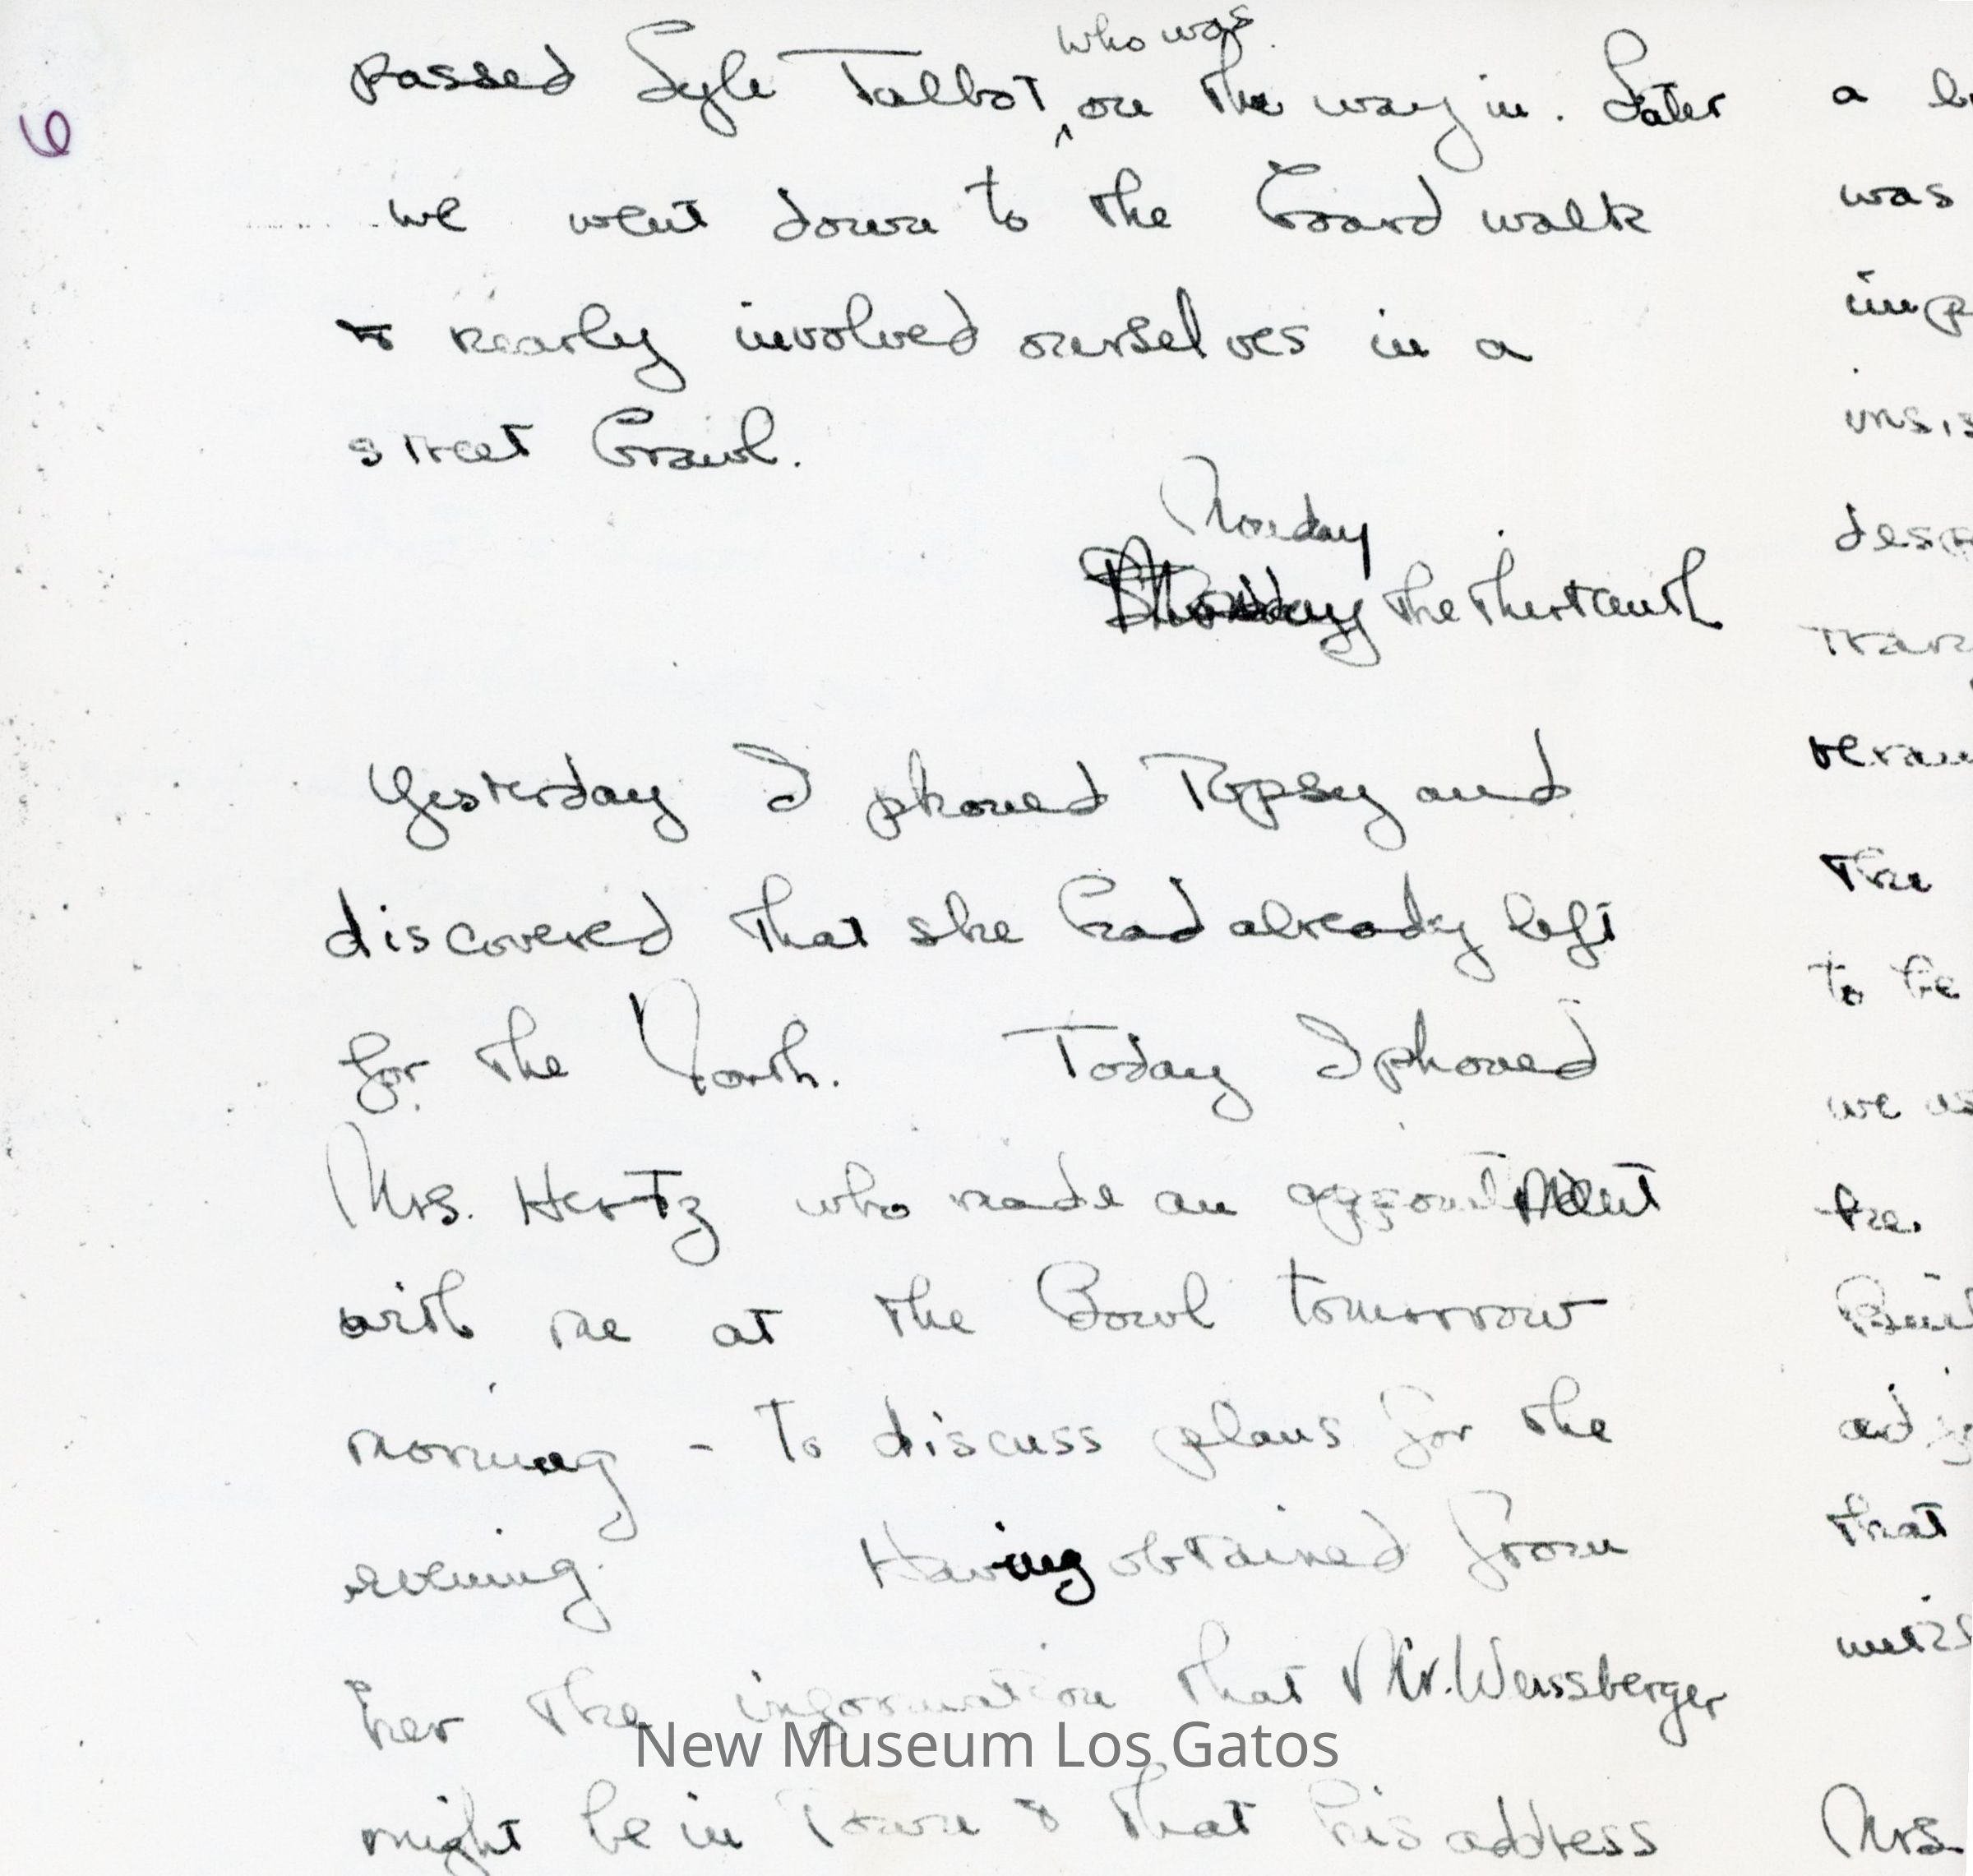 6
who was
passed Lyle Talbot ^ on the way in. Later
we went down to the Board walk
& nearly involved ourselves in a
street brawl.
Monday
the thirteenth
Yesterday I phoned Topsy and
discovered that she had already left
for the North. Today I phoned
Mrs. Hertz who made an appointment
with me at the Bowl tomorrow
morning - to discuss plans for the
evening. Having obtained from
her the information that Mr. Weissberger
might be in Town & that his address
New Museum Los Gatos
a
was
the
to be
we
he.
and
that
Mrs.